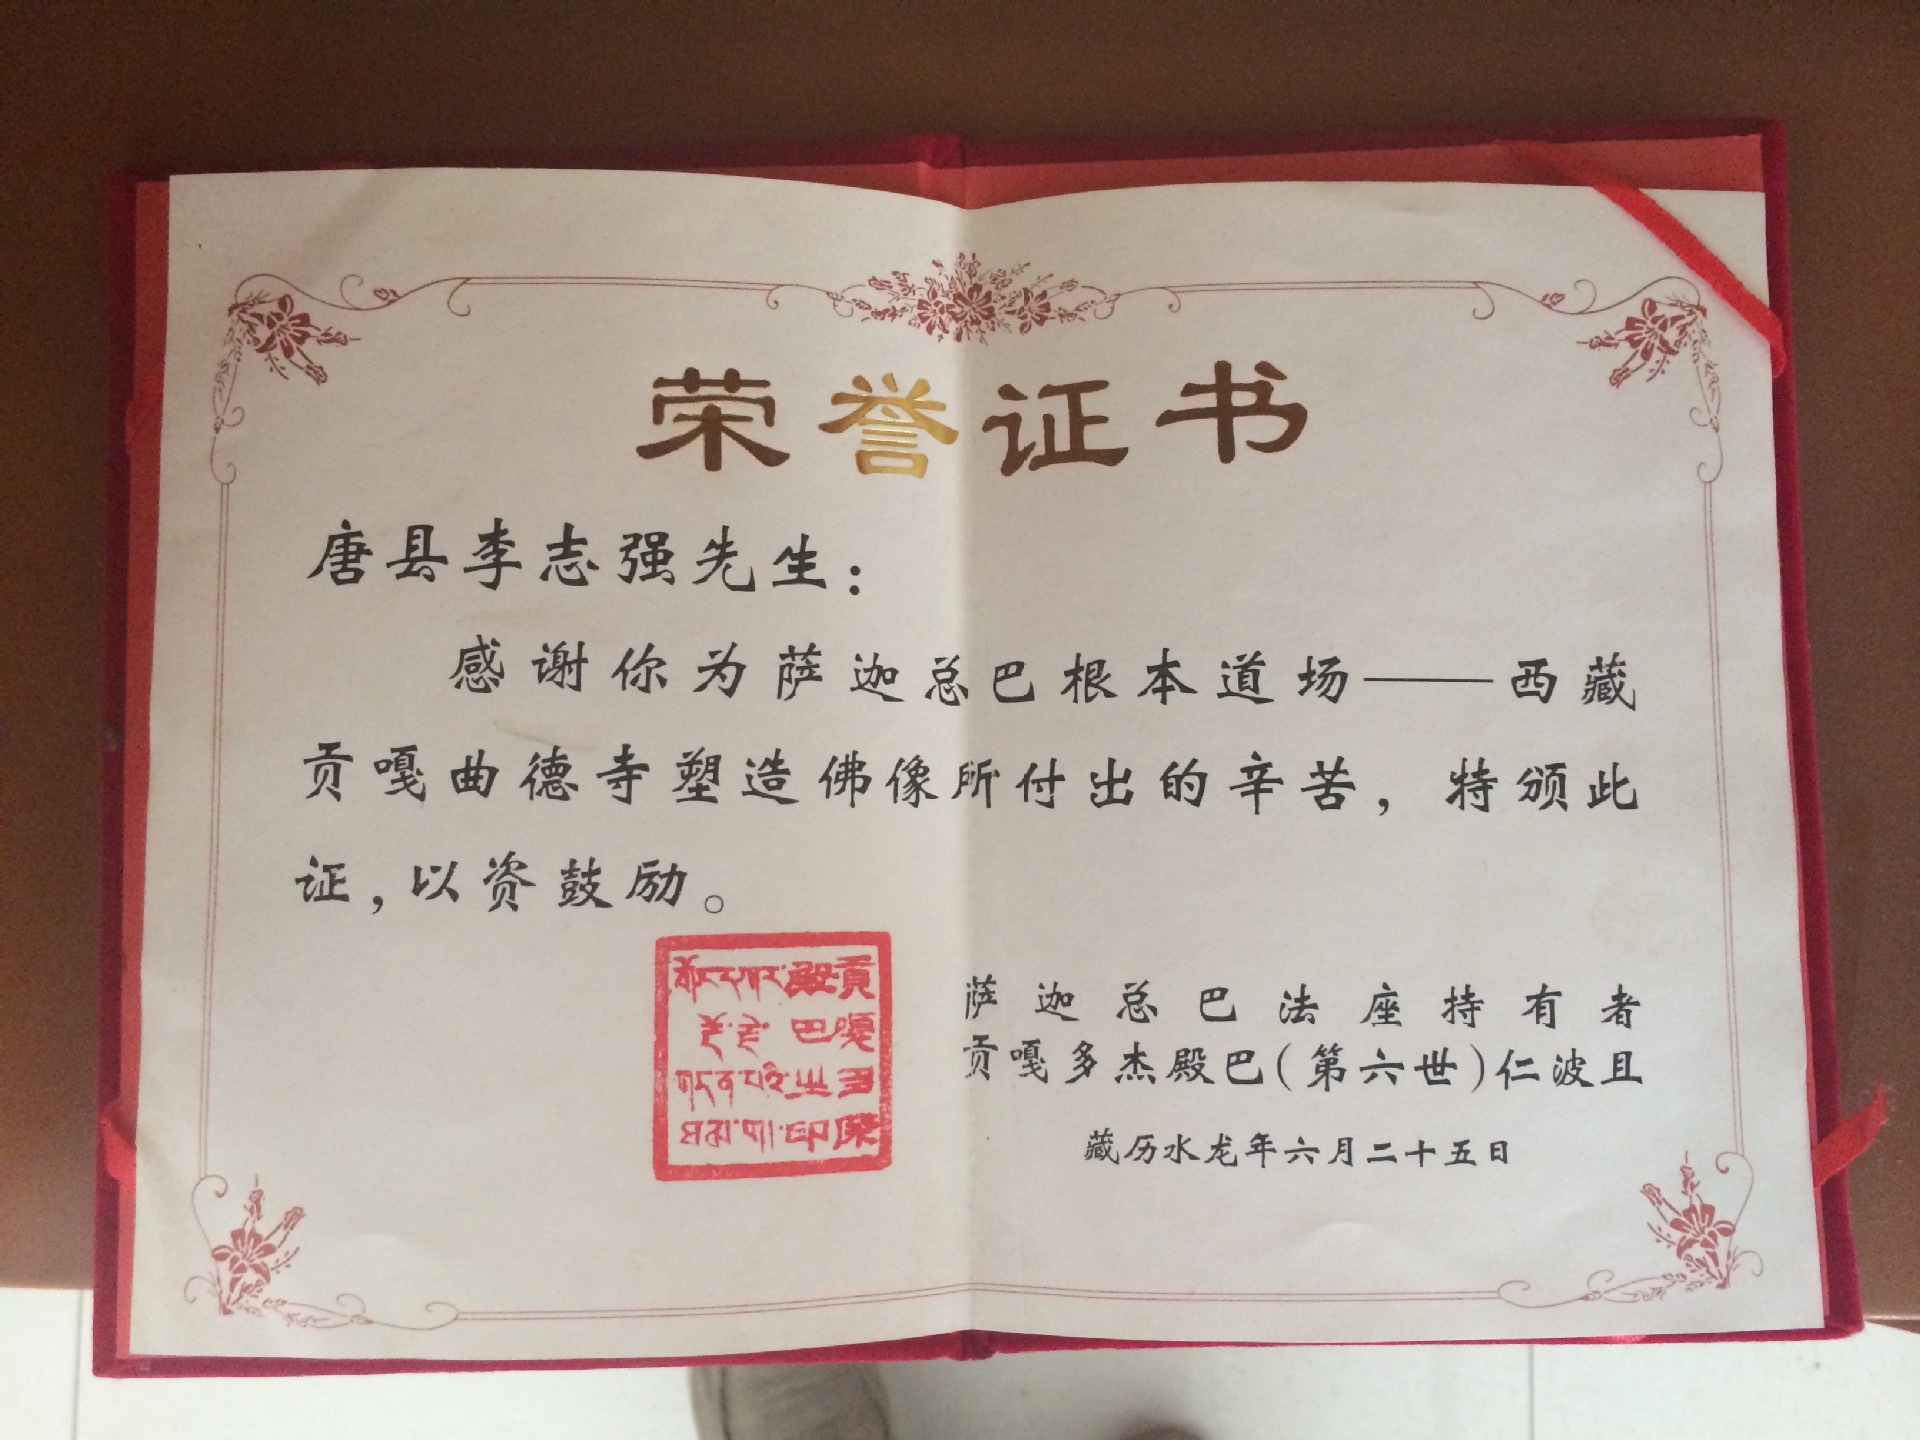 荣誉证书
唐县李志强先生：
感谢你为萨迦总巴根本道场——西藏
贡嘎曲德寺塑造佛像所付出的辛苦，特颁此
证，以资鼓励。
萨迦总巴法座持有者
贡嘎多杰殿巴（第六世）仁波且
藏历水龙年六月二十五日
贡嘎多杰
殿巴
印